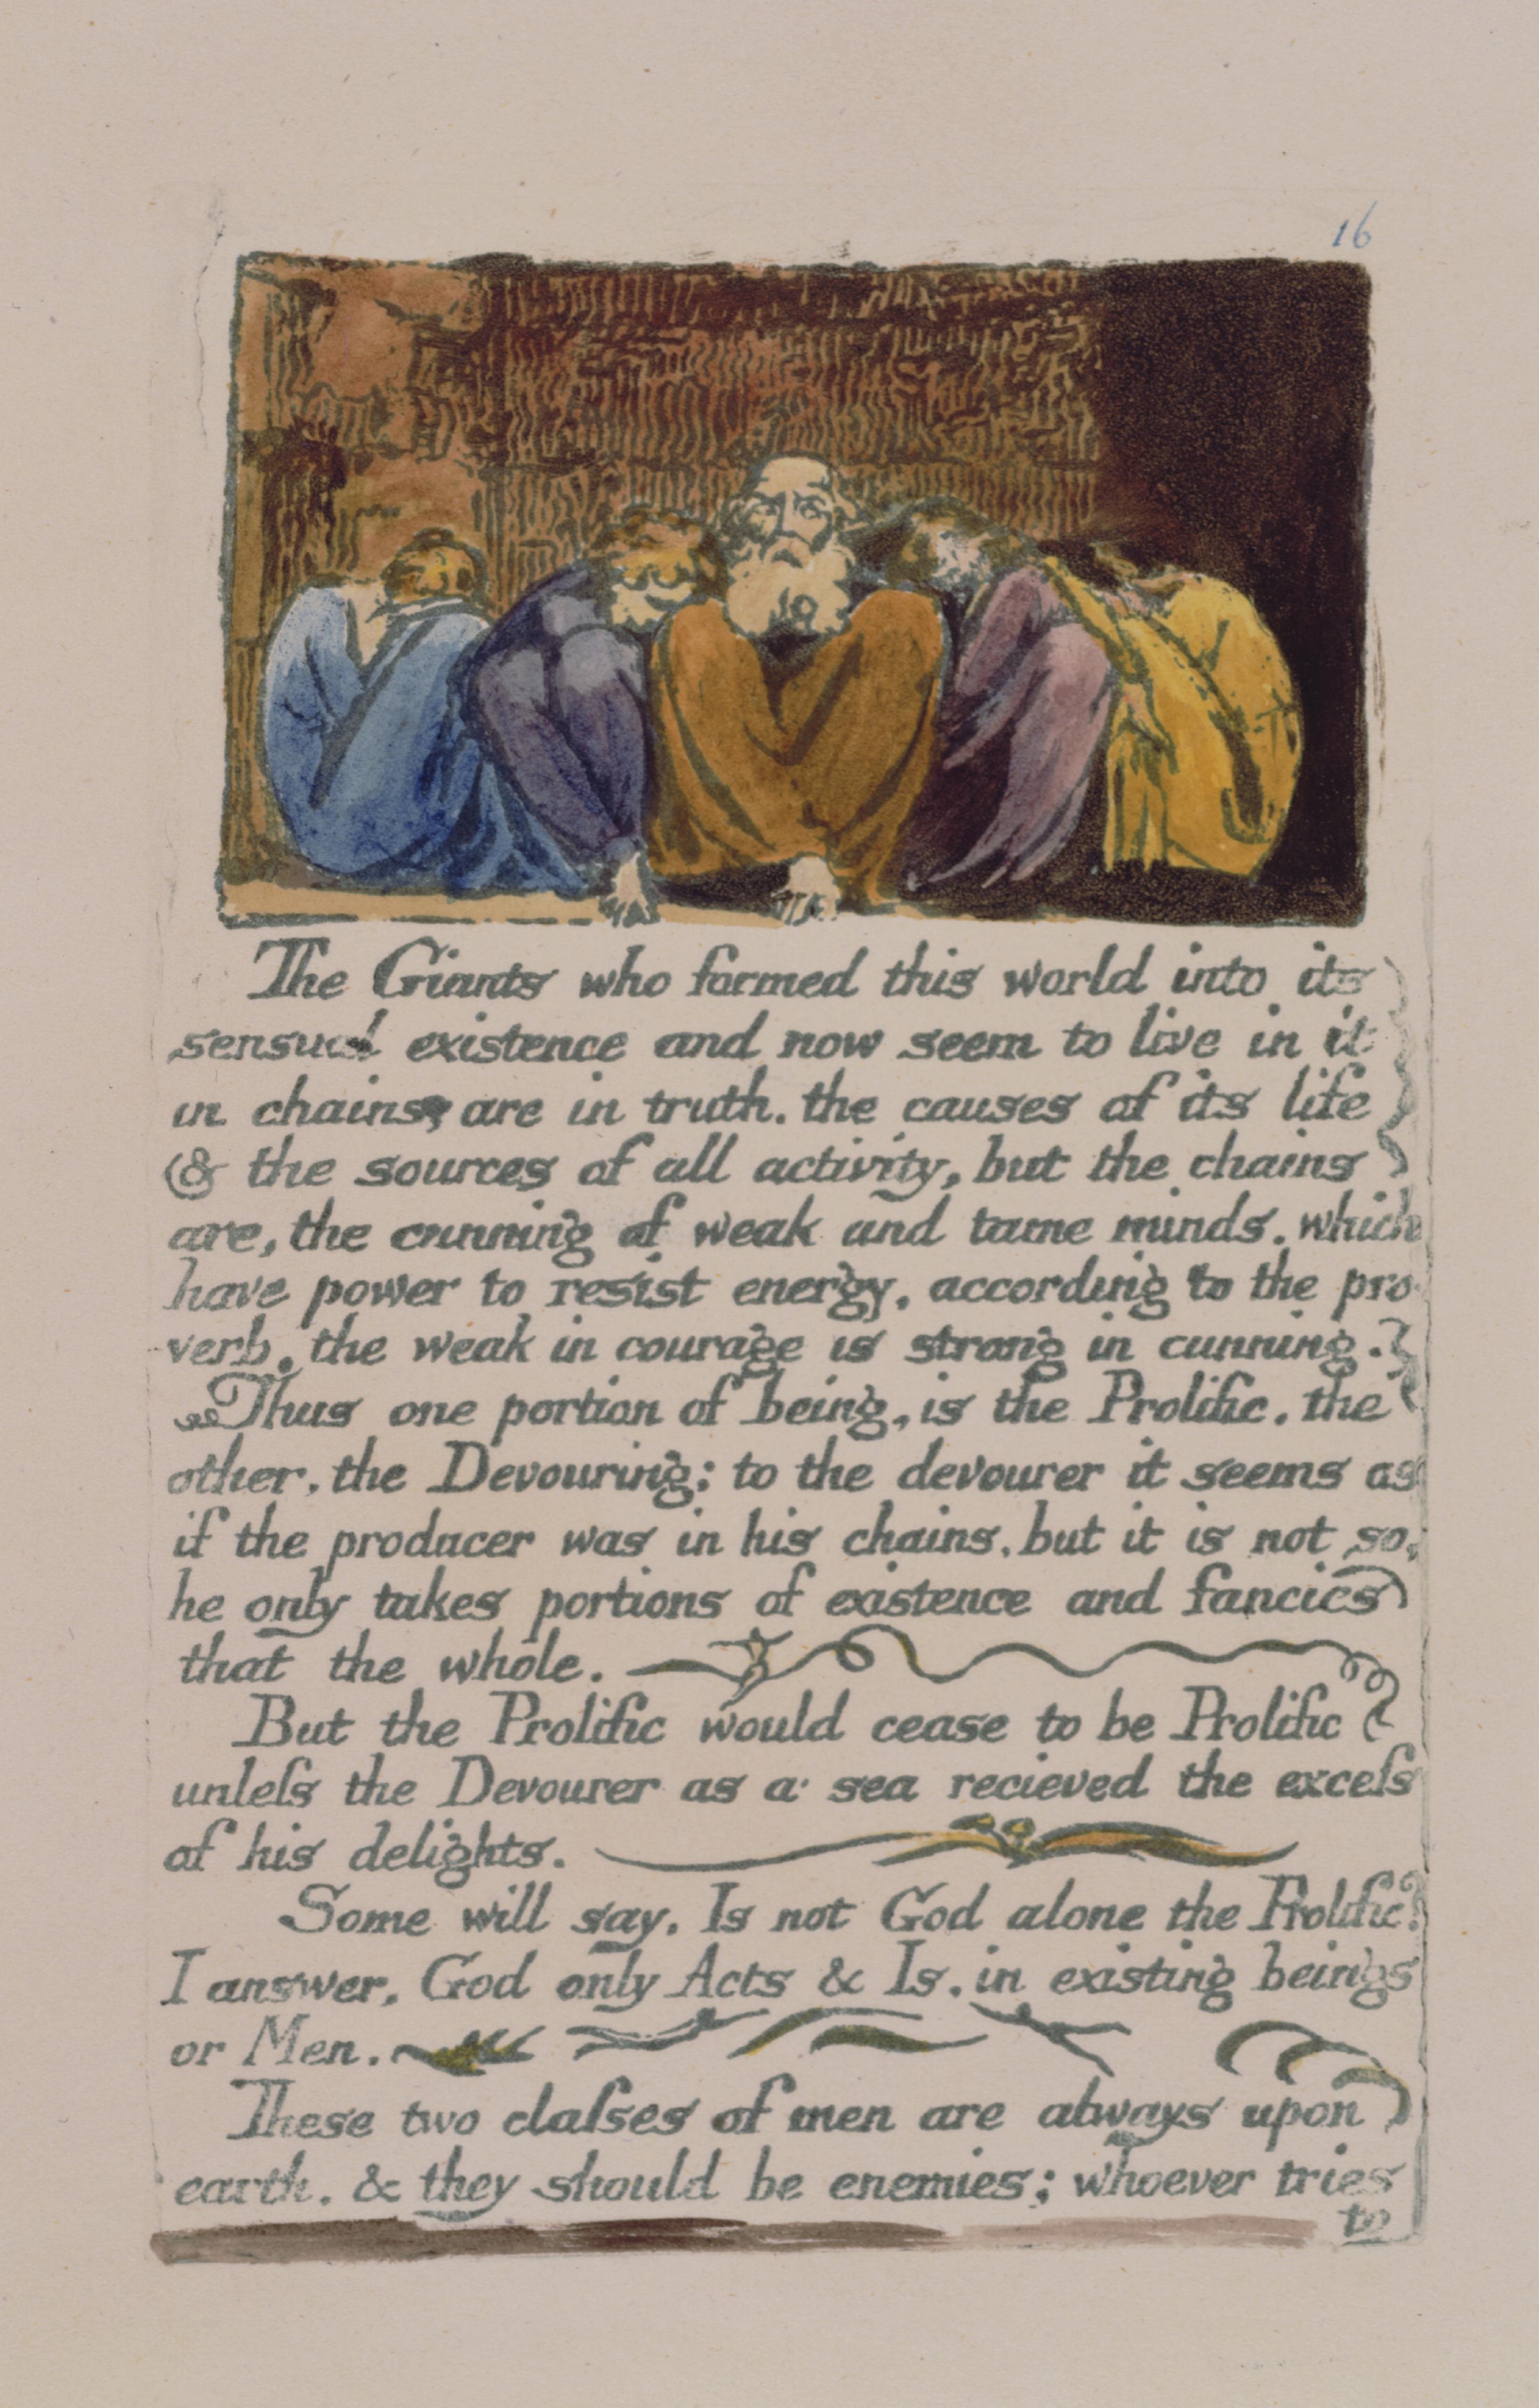 16
The Giants who formed this world into its
sensual existence and now seem to live in it
in chains, are in truth. the causes of its life
& the sources of all activity, but the chains
are, the cunning of weak and tame minds. which
have power to resist energy. according to the pro-
verb. the weak in courage is strong in cunning.
Thus one portion of being, is the Prolific. the
other. the Devouring: to the devourer it seems as
if the producer was in his chains. but it is not so,
he only takes portions of existence and fancies
that the whole.
But the Prolific would cease to be Prolific
unleſs the Devourer as a sea recieved the exceſs
of his delights.
Some will say. Is not God alone the Prolific?
I answer. God only Acts & Is. in existing beings
or Men.
These two claſses of men are always upon
earth. & they should be enemies; whoever tries
to